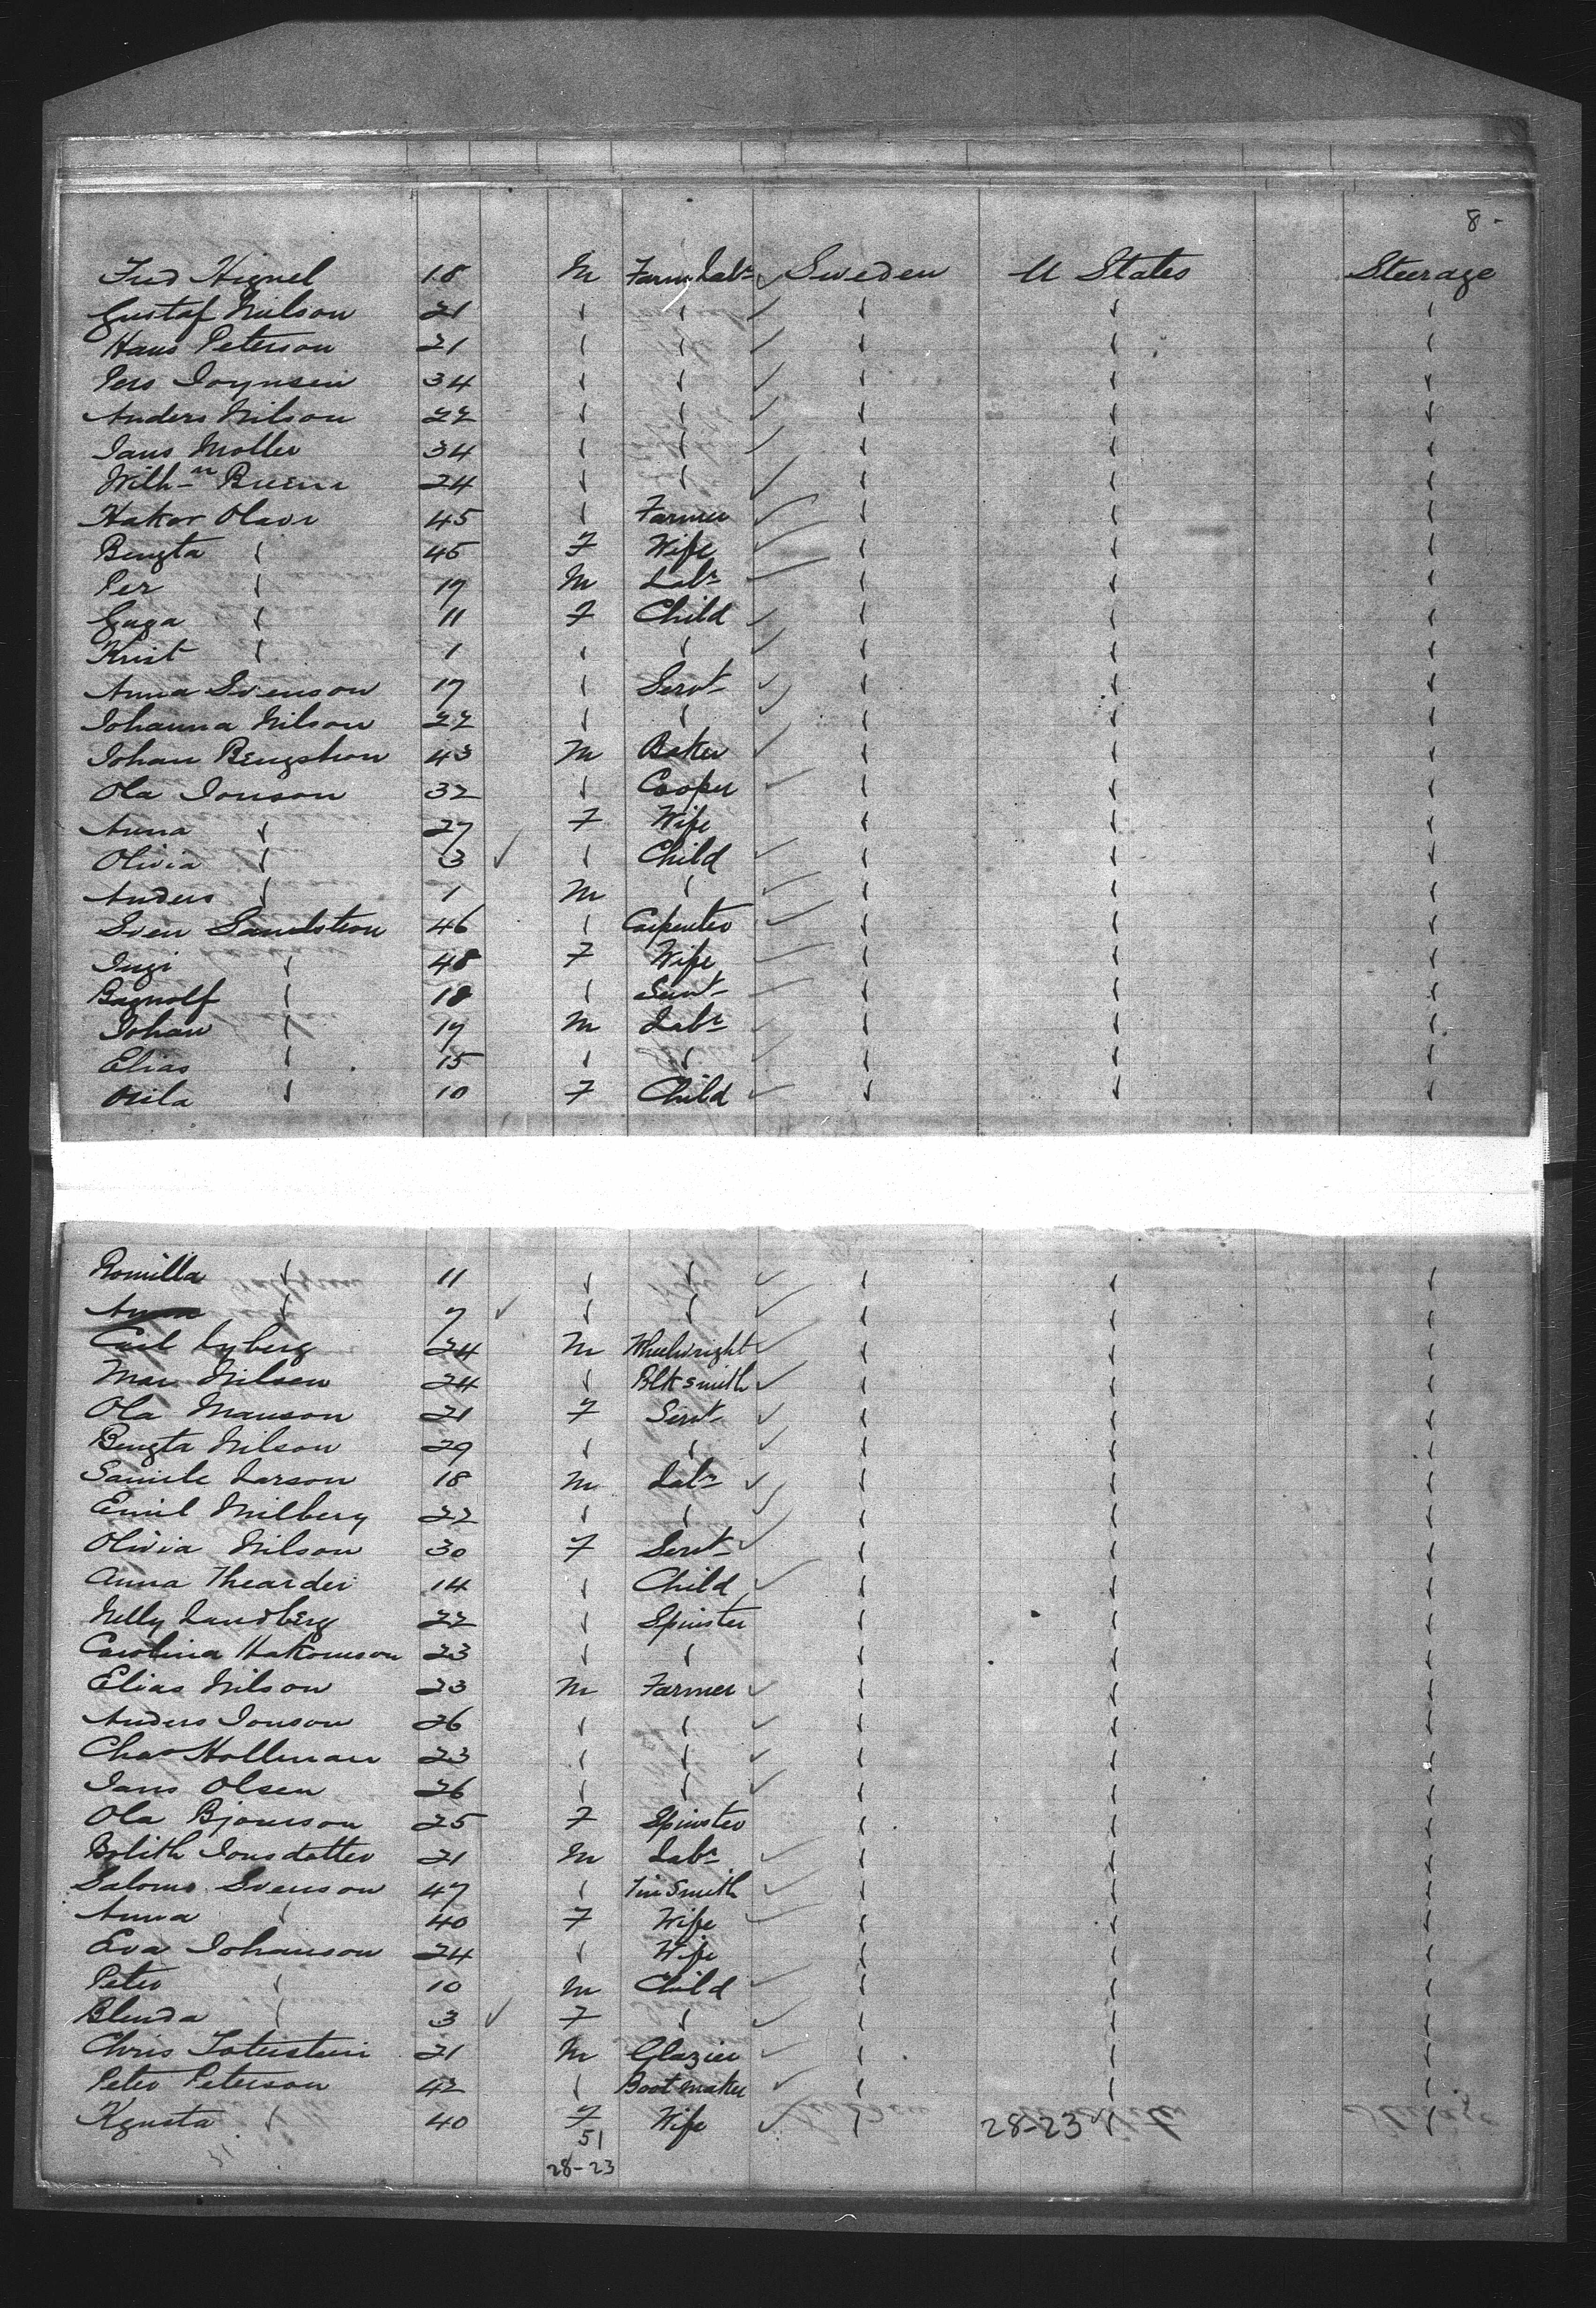 8-
Fred Hignel 18 M Farm Labr Sweden U States Steerage
Gustaf Nielson 21 " " " " "
Hans Peterson 21 " " " " "
Pers 34 " " " " "
Anders Nilson 22 " " " " "
Jans Moller 34 " " " " "
Wilh-m 24 " " " " "
Hakor Olavi 45 " Farmer " " "
Bengta " 45 F Wife " " "
Per " 17 M Labr " " "
" 11 F Child " " "
Krist " 1 " " " " "
Anna Svenson 17 " Servt " " "
Johanna Nilson 22 " " " " "
Johan Bengstson 43 M Baker " " "
Ola Jonson 32 " Cooper " " "
Anna " 27 F Wife " " "
Olivia " 3 " Child " " "
Anders " 1 M " " " "
Sven Sandstron 46 " Carpenter " " "
Ingi " 48 F Wife " " "
" 18 " Servt " " "
Johan " 17 M Labr " " "
Elias " 15 " " " " "
" 10 F Child " " "
Romilla " 11 " " " " "
Anna " 7 " " " " "
Carl Lyberg 24 M Wheelwright " " "
Mar Nilsen 24 " Blksmith " " "
Ola Manson 21 F Servt " " "
Bengta Nilson 29 " " " " "
Samile Larson 18 M Labr " " "
Emil Milberg 22 " " " " "
Olivia Nilson 30 F Servt " " "
Anna Thearder 14 " Child " " "
Nelly Landberg 22 " Spinster " " "
Carolina Hakomson 23 " " " " "
Elias Nilson 23 M Farmer " " "
Anders Jonson 26 " " " " "
Chas Hollman 23 " " " " "
Jans Olsen 26 " " " " "
Ola Bjornson 25 F Spinster " " "
Bolith Jonsdotter 21 M Labr " " "
Salomo Svenson 47 " Tin Smith " " "
Anna " 40 F Wife " " "
Eva Johanson 24 " Wife " " "
Peter " 10 M Child " " "
Blenda " 3 F " " " "
Chris Toterstein 21 M Glazier " " "
Peter Peterson 42 " Boot maker " " "
Kgusta " 40 F Wife " 28-23 " "
51
28-23